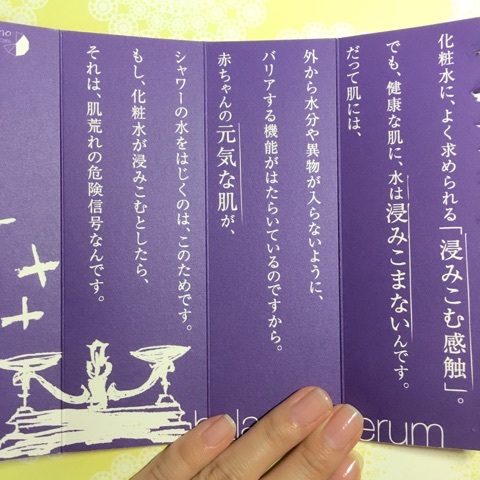 化粧水に、よく求められる「浸みこむ感触」。
でも、健康な肌に、水は浸みこまないんです。
だって肌には、
外から水分や異物が入らないように、
バリアする機能がはたらいているのですから。
赤ちゃんの元気な肌が、
シャワーの水をはじくのは、このためです。
もし、化粧水が浸みこむとしたら、
それは、肌荒れの危険信号なんです。